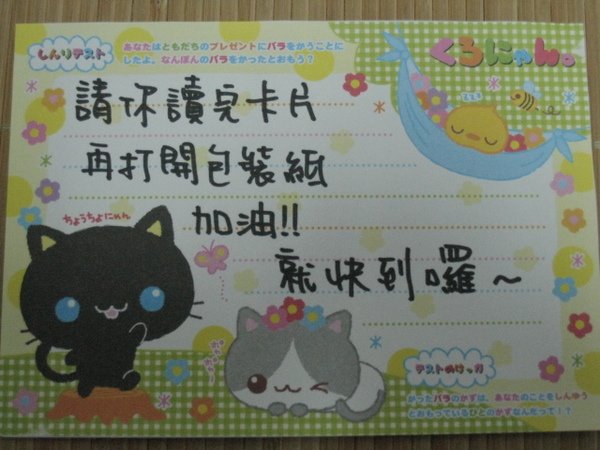 しんりテスト
あなたはともだちのプレゼントにバラをかうことに
したよ。なんぼんのバラをかったとおもう?
くろにゃん。
zzz
請你讀完卡片
再打開包裝紙
加油!!
就快到囉~
ちょうちよにゃん
テストのけっか
かったバラのかずは、あなたのことをしんゆう
とおもっているひとのかずなんだって!?